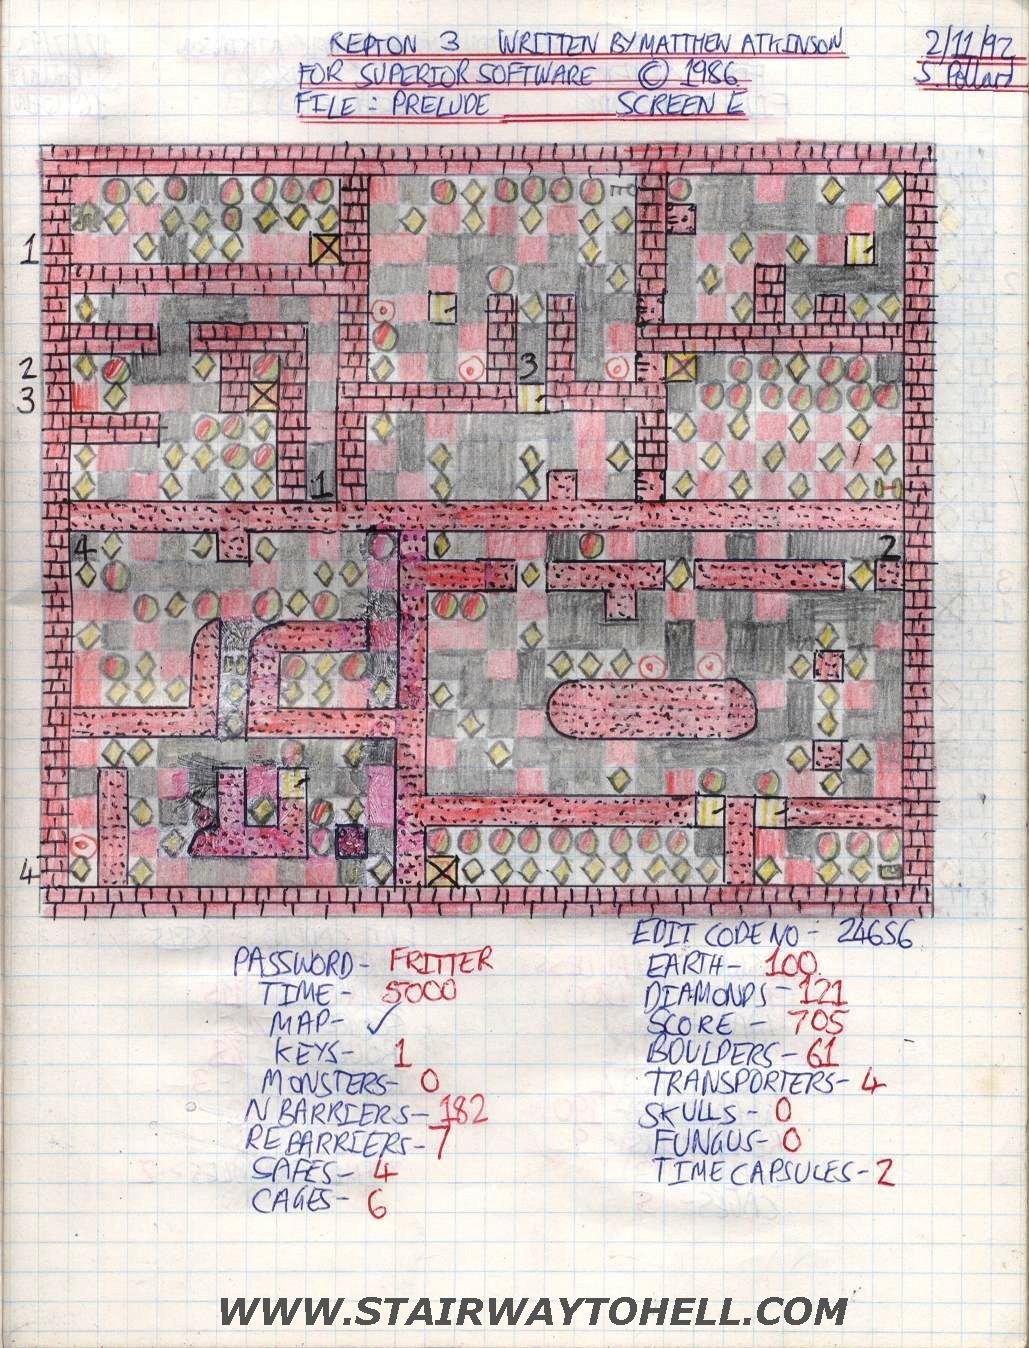 REPTON 3 WRITTEN BY MATTHEW ATKINSON
2/11/92
FOR SUPERIOR SOFTWARE © 1986
S. Pollard
FILE : PRELUDE SCREEN E
1
2
3
3
1
4
2
4
EDIT CODE NO - 24656
PASSWORD - FRITTER
EARTH - 100
TIME - 5000
DIAMONDS - 121
MAP - ✓
SCORE - 705
KEYS - 1
BOULDERS - 61
MONSTERS - 0
TRANSPORTERS - 4
N BARRIERS - 182
SKULLS - 0
RE BARRIERS - 7
FUNGUS - 0
SAFES - 4
TIME CAPSULES - 2
CAGES - 6
WWW.STAIRWAYTOHELL.COM